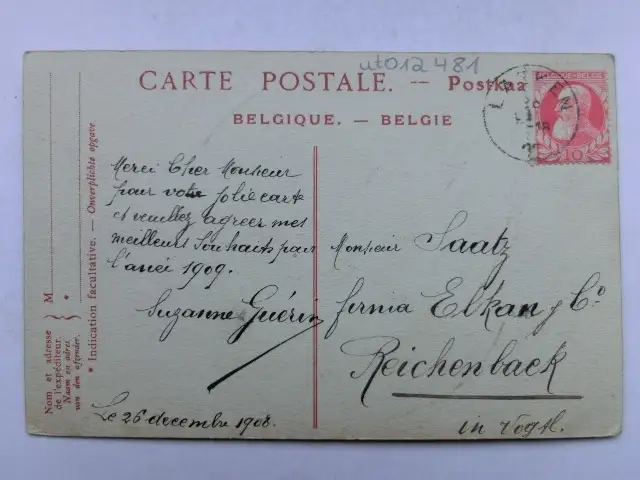 ut012481
CARTE POSTALE. — Postkaa
BELGIQUE. — BELGIE
BELGIQUE-BELGIE
10
LAEKEN
Merci Cher Monsieur
pour votre jolie carte
et veuillez agréer mes
meilleurs Souhaits pour
l'année 1909.
Suzanne Guérin
Le 26 decembre 1908.
Monsieur Saatz
firma Elkan y Co
Reichenback
in Vogtl.
M
*
Nom et adresse
de l'expéditeur.
Naam en adres
van den afzender.
* Indication facultative. — Onverplichte opgave.